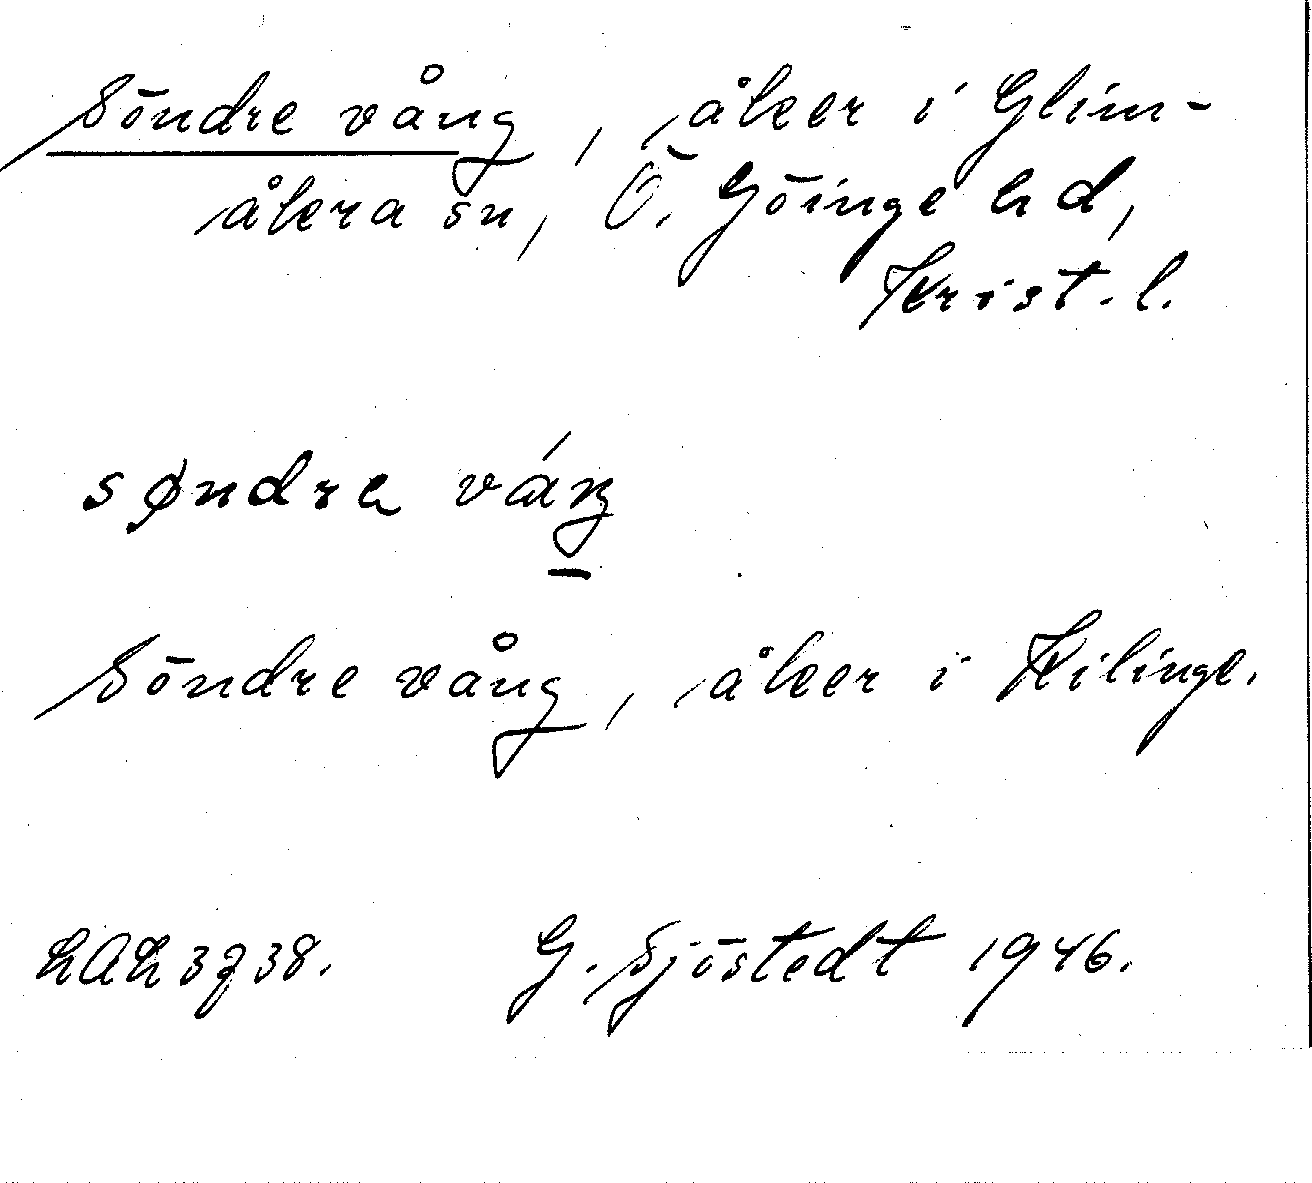 Söndre vång, åker i Glim-
åkra sn, Ö. Göinge hd,
Krist. l.
søndrə váŋ
Söndre vång, åker i Kilinge.
G. Sjöstedt 1946.